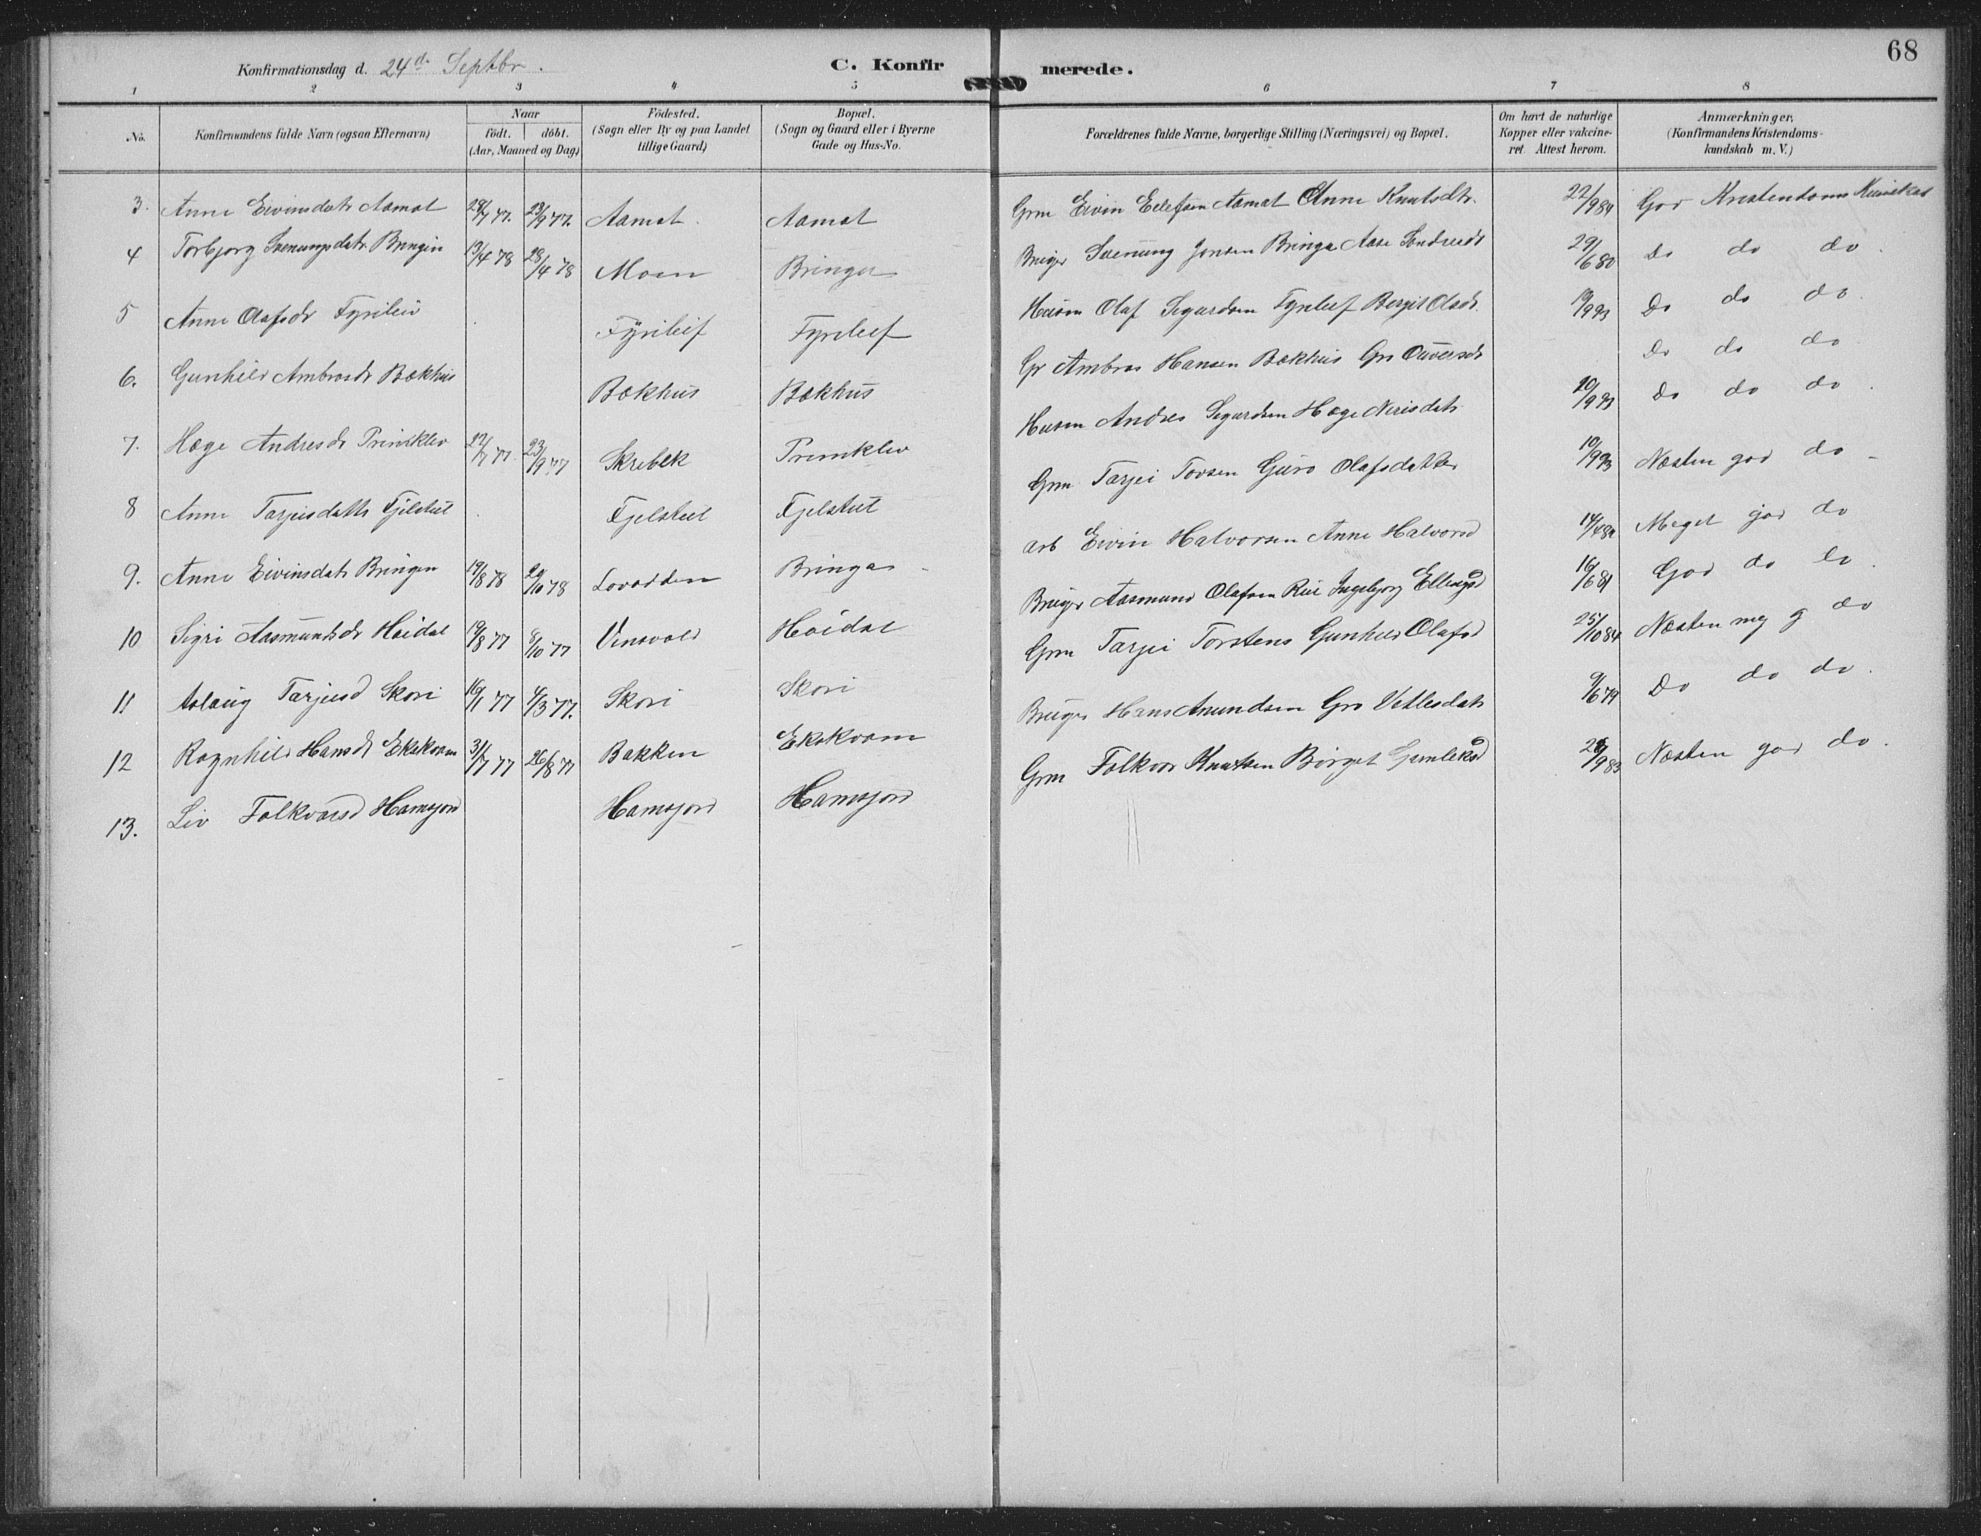 68
Konfirmationsdag d. 24d. Septbr.
C. Konfirmerede.
1 2 3 4 5 6 7 8
No. Konfirmandens fulde Navn (ogsaa Efternavn) Naar født. døbt. (Aar, Maaned og Dag) Fødested. (Sogn eller By og paa Landet tillige Gaard) Bopæl. (Sogn og Gaard eller i Byerne Gade og Hus-No. Forældrenes fulde Navne, borgerlige Stilling (Næringsvei) og Bopæl. Om havt de naturlige Kopper eller vakcineret. Attest herom. Anmærkninger, (Konfirmandens Kristendomskundskab m. V.)
3. Anne Eivinsdatr Aamot 28/7 77. 23/9 77. Aamot. Aamot Grm Eivin Ellefsen Aamot Anne Knutsdtr. 22/9 84 God Kristendoms Kundskab
4 Torbjørg Svenungsdatr Bringen 13/4 78 28/4 78 Moen Bringa Bruger Svenung Jonsen Bringa Aase Sondresdt 29/6 80 Do do do.
5 Anne Olafsdr Fyrileiv Fyrileif Fyrileif Husm Olaf Sigurdsen Fyrileif Bergit Olsdr. 19/9 93 Do do do.
6. Gunhild Ambrosdr Bækhus Bækhus Bækhus Gr Ambros Hansen Bækhus Gro Ouversdr Do do do
7. Hæge Andresdr Primklev 22/7 77. 23/9 77 Skrebek Primklev Husm Andres Sigurdsen Hæge Nerisdatr 10/9 93 Do do do.
8 Anne Tarjeisdattr Fjelstul Fjelstul Fjelstul Grm Tarjei Tovsen Guro Olafsdatter 10/9 93 Næsten god do
9. Anne Eivinsdatr Bringen 19/8 78 20/10 78 Lovodden Bringa Arb Eivin Halvorsen Anne Halvorsd 14/4 84 Meget god do
10 Sigri Aasmundsdr Høidal 19/8 77 8/10 77 Vinsvold Høidal Bruger Aasmund Olafsen Rui Ingebjorg Ellingsd 16/6 81 God do do.
11 Aslaug Tarjeisd Skori 16/1 77 4/3 77. Skori Skori Grm Tarjei Torstens Gunhild Olafsd 25/10 84 Næsten meg g do
12 Ragnhild Hansdr Ekskvam 31/7 77 26/8 77 Bakken Ekskvam Bruger Hans Anundsen Gro Vetlesdatr 9/6 79 Do do do.
13. Liv Folkvorsd Hamsjord Hamsjord Hamsjord Grm Folkvor Knutsen Borget Gunleksd 28/9 83 Næsten god do.